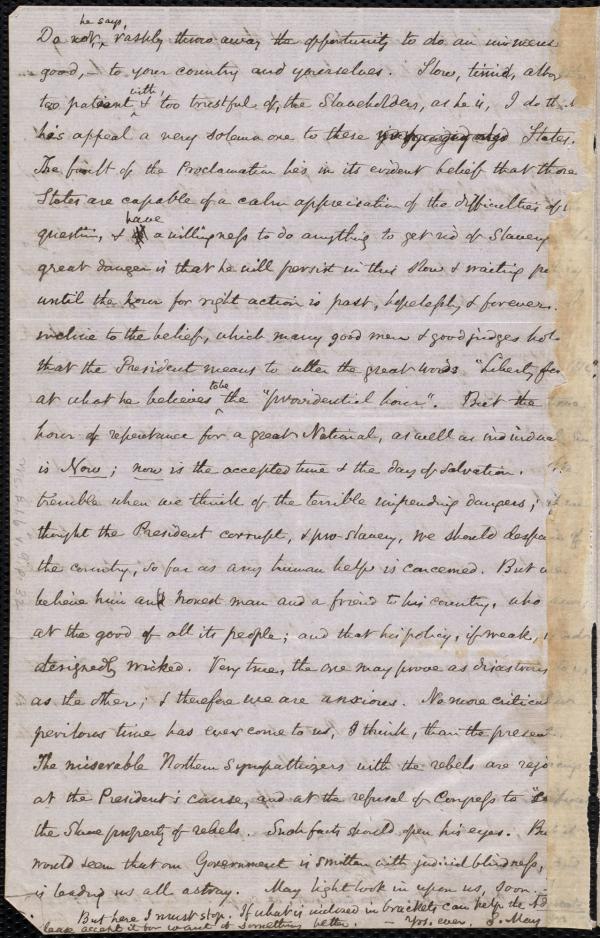 he says,
Do not, rashly throw away the opportunity to do an immens
good, – to your country and yourselves. Slow, timid, alto
too patient with & too trustful of, the Slaveholders, as he is, I do th
his appeal a very solemn one to these States.
The fault of the Proclamation lies in its evident belief that those
States are capable of a calm appreciation of the difficulties of
question, & have a willingness to do anything to get rid of Slavery
great danger is that he will persist in this slow & waiting po
until the hour for right action is past, hopelessly & forever.
incline to the belief, which many good men & good judges hol
that the President means to utter the great words "Liberty for
at what he believes to be the "providential hour". But the
hour of repentance for a great National, as well as individua
is Now; now is the accepted time & the day of salvation.
tremble when we think of the terrible impending dangers;
thought the President corrupt, & pro-slavery, we should despa
the country, so far as any human help is concerned. But we
believe him an honest man and a friend to his country, who
at the good of all its people; and that his policy, if weak,
designedly wicked. Very true, the one may prove as disastrous
as the other; & therefore we are anxious. No more critical
perilous time has ever come to us, I think, than the present
The miserable Northern Sympathizers with the rebels are rejo
at the President's course, and at the refusal of Congress to
the Slave property of rebels. Such facts should open his eyes. Bu
would seem that our Government is smitten with judicial blindness,
is leading us all astray. May light look in upon us, soon. –
But here I must stop. If what is inclosed in brackets can help the
accept it for want of something better. – Yrs. ever. S. May